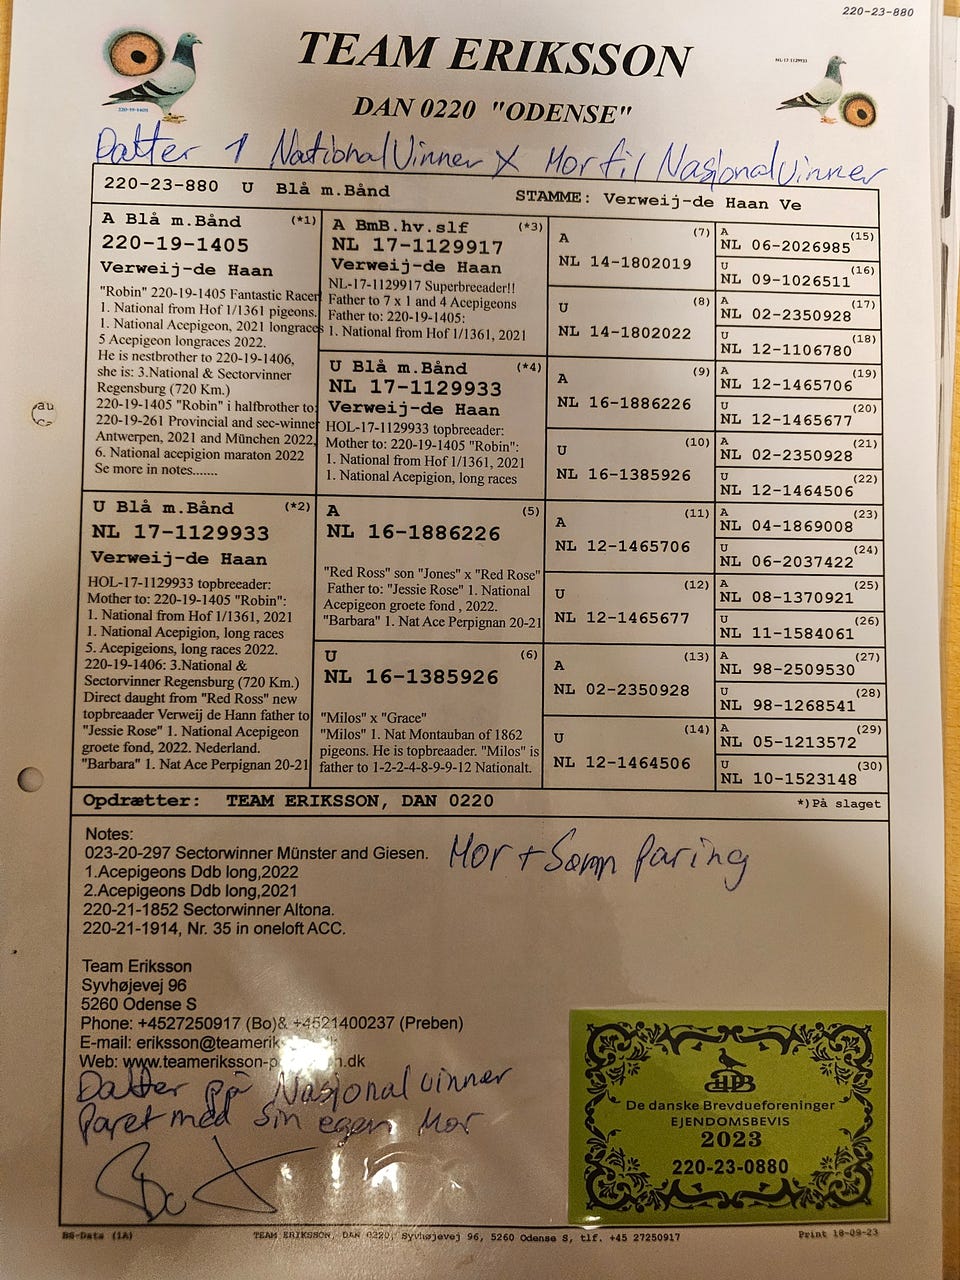 220-23-880
TEAM ERIKSSON
DAN 0220 "ODENSE"
220-19-1405
NL-17-1129933
Datter 1 National Vinner X Mor til Nasjonal Vinner
220-23-880 U Blå m.Bånd STAMME: Verweij-de Haan Ve
A Blå m.Bånd (*1)
220-19-1405
Verweij-de Haan
"Robin" 220-19-1405 Fantastic Racer
1. National from Hof 1/1361 pigeons.
1. National Acepigeon, 2021 longraces
5 Acepigeon longraces 2022.
He is nestbrother to 220-19-1406,
she is: 3.National & Sectorvinner
Regensburg (720 Km.)
220-19-1405 "Robin" i halfbrother to:
220-19-261 Provincial and sec-winner
Antwerpen, 2021 and München 2022,
6. National acepigion maraton 2022
Se more in notes.......
U Blå m.Bånd (*2)
NL 17-1129933
Verweij-de Haan
HOL-17-1129933 topbreeader:
Mother to: 220-19-1405 "Robin":
1. National from Hof 1/1361, 2021
1. National Acepigion, long races
5. Acepigeions, long races 2022.
220-19-1406: 3.National &
Sectorvinner Regensburg (720 Km.)
Direct daught from "Red Ross" new
topbreaader Verweij de Hann father to
"Jessie Rose" 1. National Acepigeon
groete fond, 2022. Nederland.
"Barbara" 1. Nat Ace Perpignan 20-21
A BmB.hv.slf (*3)
NL 17-1129917
Verweij-de Haan
NL-17-1129917 Superbreeader!!
Father to 7 x 1 and 4 Acepigeons
Father to: 220-19-1405:
1. National from Hof 1/1361, 2021
U Blå m.Bånd (*4)
NL 17-1129933
Verweij-de Haan
HOL-17-1129933 topbreeder:
Mother to: 220-19-1405 "Robin":
1. National from Hof 1/1361, 2021
1. National Acepigion, long races
A (5)
NL 16-1886226
"Red Ross" son "Jones" x "Red Rose"
Father to: "Jessie Rose" 1. National
Acepigeon groete fond , 2022.
"Barbara" 1. Nat Ace Perpignan 20-21
U (6)
NL 16-1385926
"Milos" x "Grace"
"Milos" 1. Nat Montauban of 1862
pigeons. He is topbreader. "Milos" is
father to 1-2-2-4-8-9-9-12 Nationalt.
A (7)
NL 14-1802019
U (8)
NL 14-1802022
A (9)
NL 16-1886226
U (10)
NL 16-1385926
A (11)
NL 12-1465706
U (12)
NL 12-1465677
A (13)
NL 02-2350928
U (14)
NL 12-1464506
A (15)
NL 06-2026985
U (16)
NL 09-1026511
A (17)
NL 02-2350928
U (18)
NL 12-1106780
A (19)
NL 12-1465706
U (20)
NL 12-1465677
A (21)
NL 02-2350928
U (22)
NL 12-1464506
A (23)
NL 04-1869008
U (24)
NL 06-2037422
A (25)
NL 08-1370921
U (26)
NL 11-1584061
A (27)
NL 98-2509530
U (28)
NL 98-1268541
A (29)
NL 05-1213572
U (30)
NL 10-1523148
Opdrætter: TEAM ERIKSSON, DAN 0220 *)På slaget
Notes:
023-20-297 Sectorwinner Münster and Giesen.
1.Acepigeons Ddb long,2022
2.Acepigeons Ddb long,2021
220-21-1852 Sectorwinner Altona.
220-21-1914, Nr. 35 in oneloft ACC.
Mor + Sønn Paring
Team Eriksson
Syvhøjevej 96
5260 Odense S
Phone: +4527250917 (Bo)& +4521400237 (Preben)
E-mail:
Web:
Datter på Nasjonal vinner
Paret med sin egen Mor
Bo
HPB
De danske Brevdueforeninger
EJENDOMSBEVIS
2023
220-23-0880
BS-Data (1A) TEAM ERIKSSON, DAN 0220, Syvhøjevej 96, 5260 Odense S, tlf. +45 27250917 Print 18-09-23